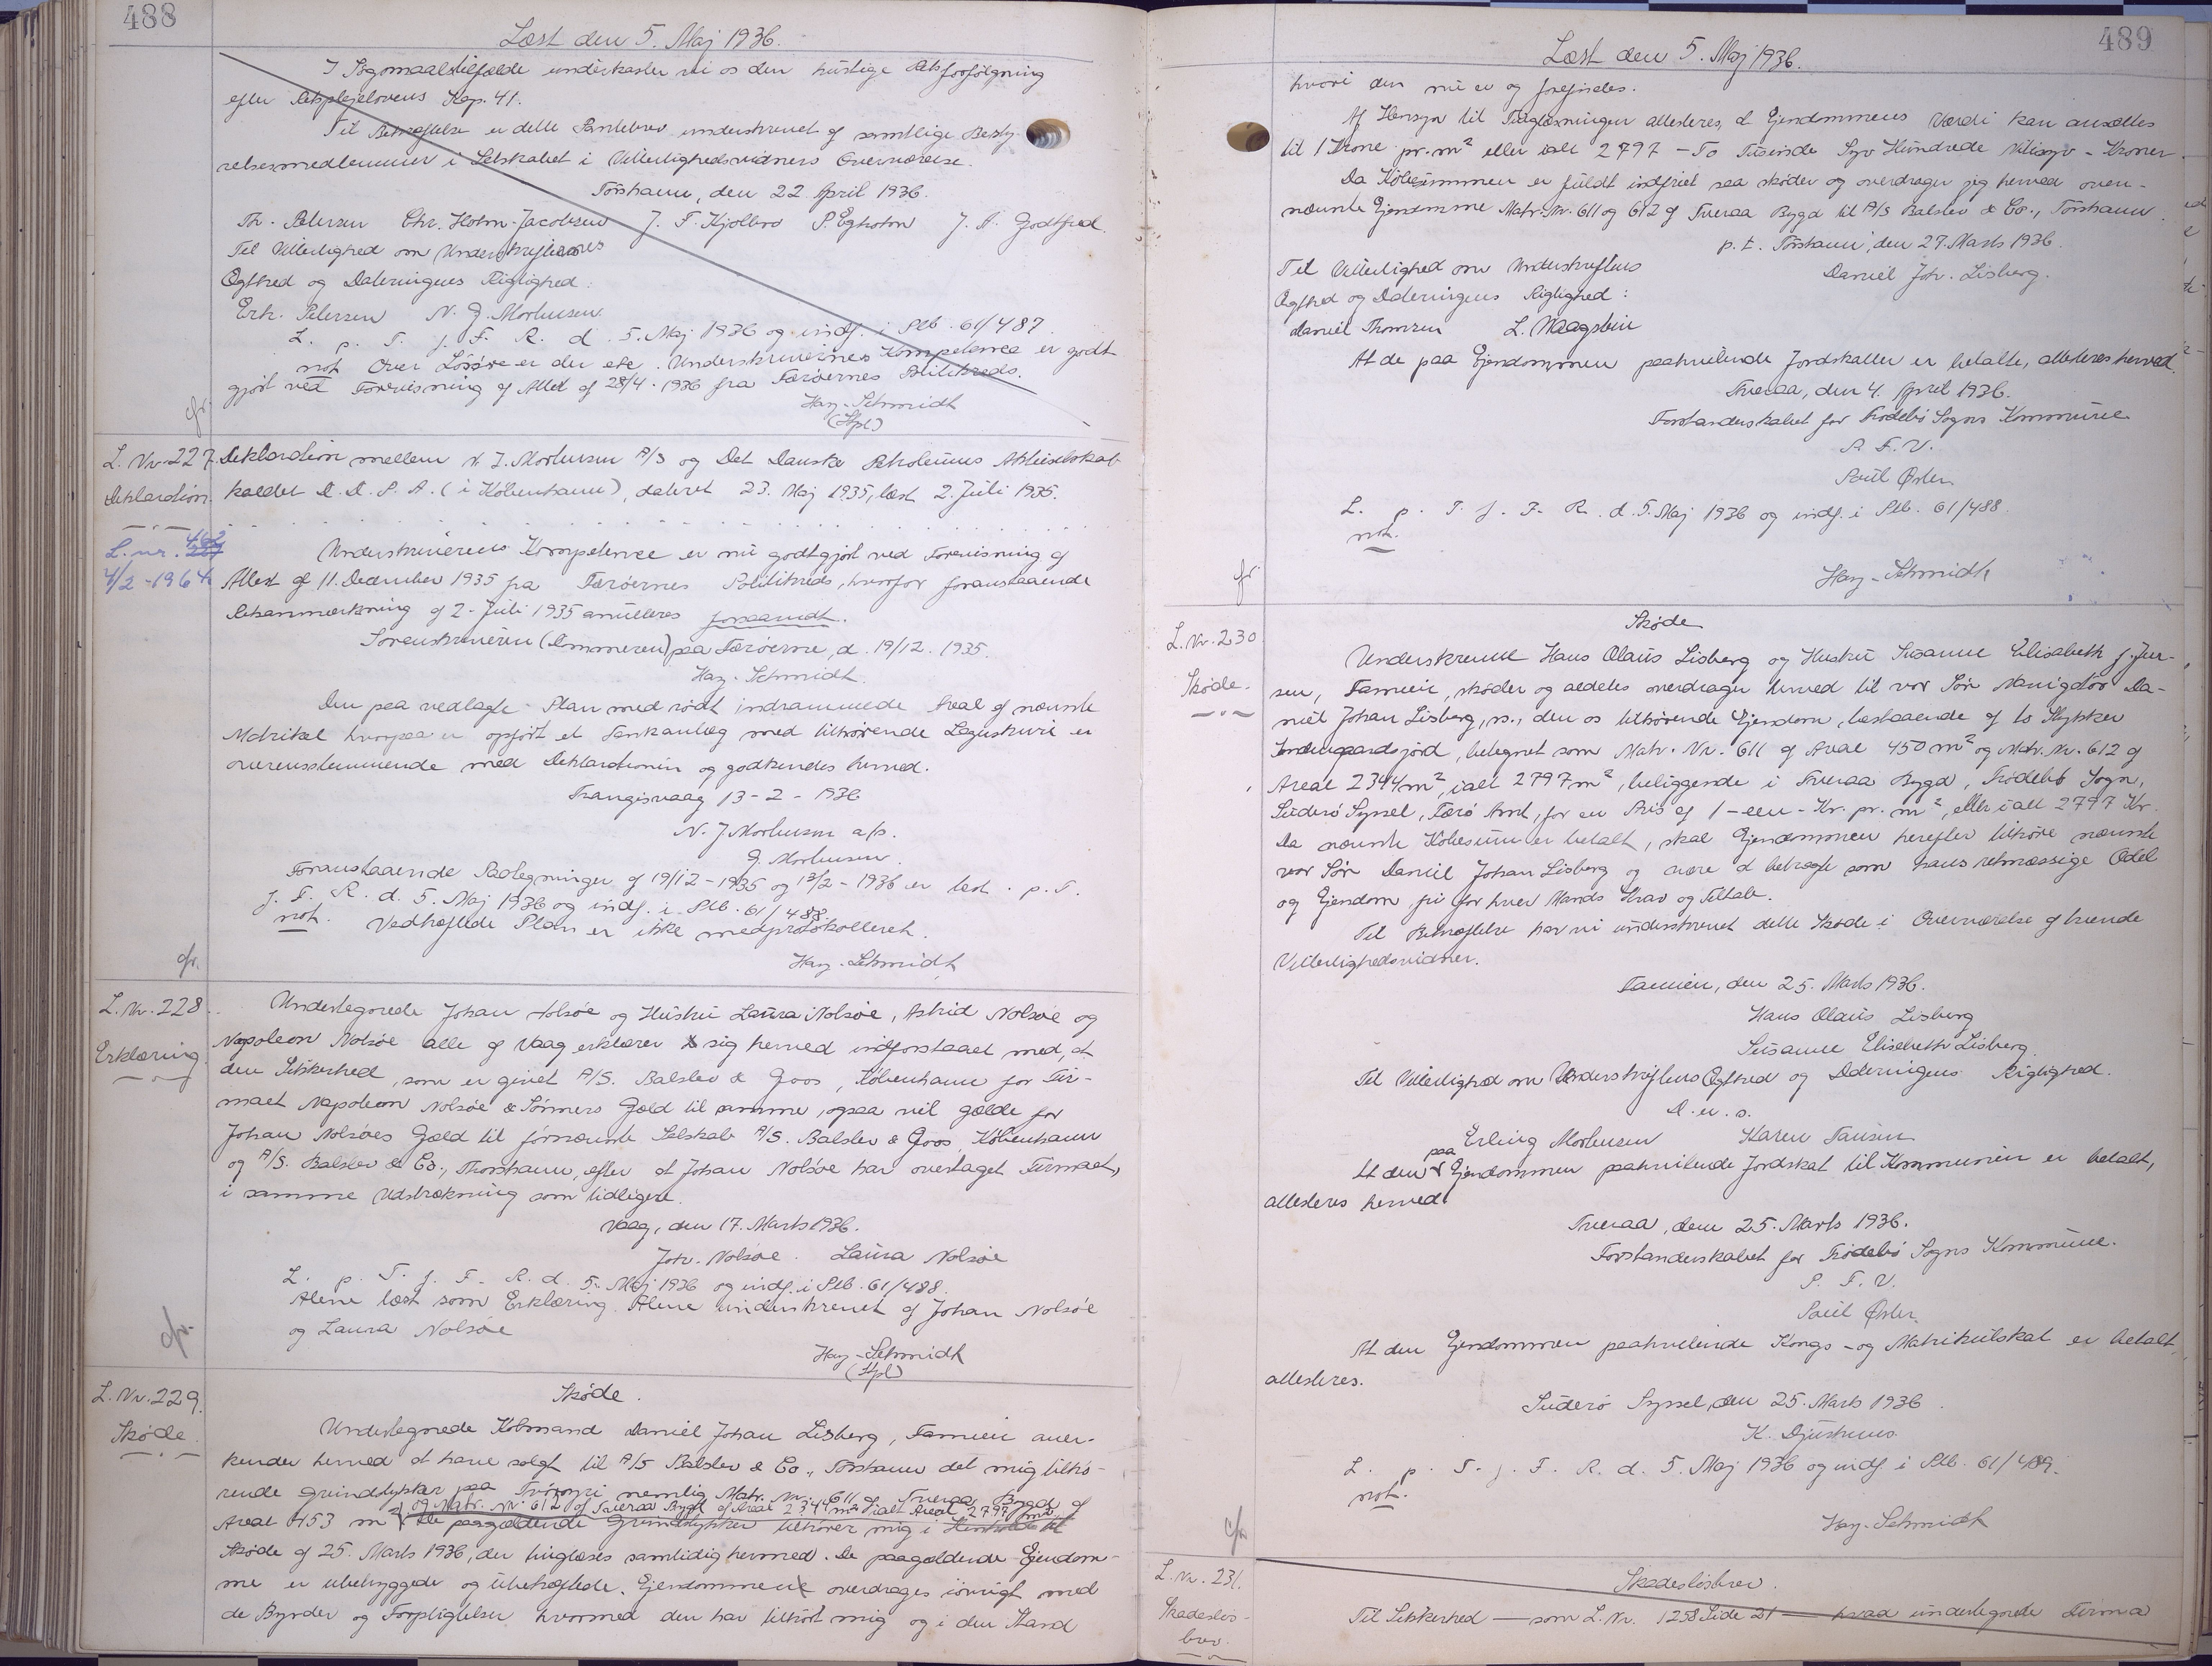 488
Læst den 5. Maj 1936.
I Søgsmaalstilfælde underkaster vi os den hurtige Retsforfølgning
efter Retsplejelovens Kap. 41.
Til Bekræftelse er dette Pantebrev underskrevet af samtlige Besty-
relsesmedlemmer i Selskabet i Vitterlighedsvidners Overværelse.
Torshavn, den 22 April 1936.
Th. Petersen Chr. Holm-Jacobsen J. F. Kjølbro P. Egholm J. A. Godtfred
Til Vitterlighed om Underskrifternes
Ægthed og Dateringens Rigtighed:
Erh. Petersen N. J. Mortensen
L. p. T. f. F. R. d. 5. Maj 1936 og indf. i Ptb. 61/487.
not. Over Løsøre er der ete. Underskrivernes Kompetence er godt
gjort ved Forevisning af Attest af 28/4. 1936 fra Færøernes Politikreds.
Hay-Schmidt
(Hpl)
cfr.
L. Nr. 227.
Deklaration.
Deklaration mellem N. J. Mortensen A/S og Det Danske Petroleums Aktieselskab
kaldet D. D. P. A. (i København), dateret 23. Maj 1935, læst 2. Juli 1935.
L. nr. 227 462
4/2-1964
Underskriverens Kompetence er nu godtgjort ved Forevisning af
Attest af 11. December 1935 fra Færøernes Politikreds, hvorfor foranstaaende
Retsanmærkning af 2. Juli 1935 annulleres forsaavidt.
Sorenskriveren (Dommeren) paa Færøerne, d. 19/12. 1935.
Hay-Schmidt.
Den paa vedlagte Plan med rødt indrammede Areal af nævnte
Matrikel hvorpaa er opført et Tankanlæg med tilhørende Lagerskur er
overensstemmende med Deklarationen og godkendes herved.
Trangisvaag 13-2-1936
N. J Mortensen a/s.
J. Mortensen.
Foranstaaende Paategninger af 19/12-1935 og 13/2-1936 er læst p. T.
f. F. R. d. 5. Maj 1936 og indf. i Ptb. 61/488.
not. Vedhæftede Plan er ikke medprotokolleret.
Hay-Schmidt
cfr.
L. Nr. 228.
Erklæring.
Undertegnede Johan Nolsøe og Hustru Laura Nolsøe, Astrid Nolsøe og
Napoleon Nolsøe alle af Vaag erklærer sig herved indforstaaet med, at
den Sikkerhed, som er givet A/S. Balslev & Goos, København for Fir-
maet Napoleon Nolsøe & Sønners Gæld til samme, ogsaa vil gælde for
Johan Nolsøes Gæld til førnævnte Selskab A/S. Balslev & Goos, København
og A/S. Balslev & Co., Thorshavn, efter at Johan Nolsøe har overtaget Firmaet,
i samme Udstrækning som tidligere.
Vaag, den 17. Marts 1936.
Joh. Nolsøe. Laura Nolsøe
L. p. T. f. F. R. d. 5. Maj 1936 og indf. i Ptb. 61/488.
Alene læst som Erklæring. Alene underskrevet af Johan Nolsøe
og Laura Nolsøe
Hay-Schmidt
(Hpl)
cfr.
L. Nr. 229.
Skøde.
Skøde.
Undertegnede Købmand Daniel Johan Lisberg, Famien aner-
kender herved at have solgt til A/S Balslev & Co., Torshavn det mig tilhø-
rende Grundstykker paa Tvøroyri nemlig Matr. Nr. 611 af Tveraa Bygd af
og Matr. Nr. 612 af Tveraa Bygd af Areal 2344 m² ialt Areal 2797 m²
Areal 453 m² De paagældende Grundstykker tilhører mig i Henhold til
Skøde af 25. Marts 1936, der tinglæses samtidig hermed. De paagældende Ejendom-
me er ubebyggede og ubehæftede. Ejendommene overdrages iøvrigt med
de Byrder og Forpligtelser hvormed den har tilhørt mig og i den Stand
489
Læst den 5. Maj 1936.
hvori den nu er og forefindes.
Af Hensyn til Tinglæsningen attesteres, at Ejendommens Værdi kan ansættes
til 1 Krone pr. m² eller ialt 2797 - To Tusinde Syv Hundrede Nitisyv - Kroner.
Da Købesummen er fuldt indfriet saa skøder og overdrager jeg herved oven-
nævnte Ejendomme Matr. Nr. 611 og 612 af Tveraa Bygd til A/S Balslev & Co., Torshavn.
p. t. Torshavn, den 27. Marts 1936.
Til Vitterlighed om Underskriftens
Daniel Joh. Lisberg.
Ægthed og Dateringens Rigtighed:
Daniel Thomsen L. Waagstein
At de paa Ejendommen paahvilende Jordskatter er betalte, attesteres herved.
Tveraa, den 4. April 1936.
Forstanderskabet for Frodebø Sogns Kommune
P. F. V.
Poul Øster
L. p. T. f. F. R. d. 5. Maj 1936 og indf. i Ptb. 61/488.
not.
Hay-Schmidt
cfr.
L. Nr. 230
Skøde.
Skøde
Underskrevne Hans Olaus Lisberg og Hustru Susanne Elisabeth f. Jen-
sen, Famien, skøder og aldeles overdrager herved til vor Søn Navigatør Da-
niel Johan Lisberg, s.s., den os tilhørende Ejendom, bestaaende af to Stykker
Indengaardsjord, betegnet som Matr. Nr. 611 af Areal 450 m² og Matr. Nr. 612 af
Areal 2344 m², ialt 2797 m², beliggende i Tveraa Bygd, Frodebø Sogn,
Suderø Syssel, Færø Amt, for en Pris af 1 - een - Kr. pr. m², eller ialt 2797 Kr.
Da nævnte Købesum er betalt, skal Ejendommen herefter tilhøre nævnte
vor Søn Daniel Johan Lisberg og være at betragte som hans retmæssige Odel
og Ejendom, fri for hver Mands Krav og Tiltale.
Til Bekræftelse har vi underskrevet dette Skøde i Overværelse af hænde
Vitterlighedsvidner.
Famien, den 25. Marts 1936.
Hans Olaus Lisberg
Susanne Elisabeth Lisberg.
Til Vitterlighed om Underskriftens Ægthed og Dateringens Rigtighed.
D. u. s.
Erling Mortensen Karen Tausen
At den paa Ejendommen paahvilende Jordskat til Kommunen er betalt,
attesteres herved.
Tveraa, den 25. Marts 1936.
Forstanderskabet for Frodebø Sogns Kommune.
P. F. V.
Poul Øster.
At den Ejendommen paahvilende Kongs- og Matrikulskat er betalt,
attesteres.
Suderø Syssel, den 25. Marts 1936.
K. Djurhuus.
L. p. T. f. F. R. d. 5. Maj 1936 og indf. i Ptb. 61/489.
not.
Hay-Schmidt
cfr.
L. Nr. 231.
Skadesløs-
brev.
Skadesløsbrev.
Til Sikkerhed — som L. Nr. 1258 Side 21 — hvad undertegnede Firma